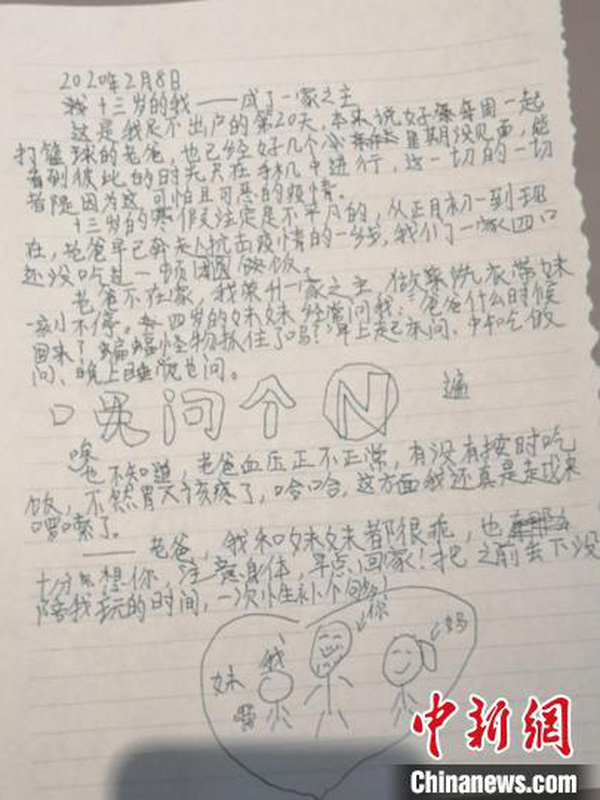 2020年2月8日
十三岁的我——成了一家之主
这是我足不出户的第20天,本来说好每周一起
打篮球的老爸,也已经好几个星期没见面,能
看到彼此的时光只在手机中进行,这一切的一切
都是因为这可怕且可恶的疫情。
十三岁的寒假注定是不平凡的,从正月初一到现
在,老爸早已奔走抗击疫情的一线,我们一家四口
还没吃过一顿团圆饭。
老爸不在家,我荣升一家之主,做菜洗衣带妹
一刻不停。四岁的妹妹经常问我:“爸爸什么时候
回来?蝙蝠怪物抓住了吗?早上起床问、中午吃饭
问、晚上睡觉也问。
问个N遍
唉
也不知道,老爸血压正不正常,有没有按时吃
饭,不然胃又该疼了,哈哈,这方面我还真是越来
啰嗦了。
——老爸,我和妹妹都很乖,也
十分想你,注意身体,早点回家!把之前去下没
陪我玩的时间,一次性补个回!
妹 我 你 妈
中新网
Chinanews.com